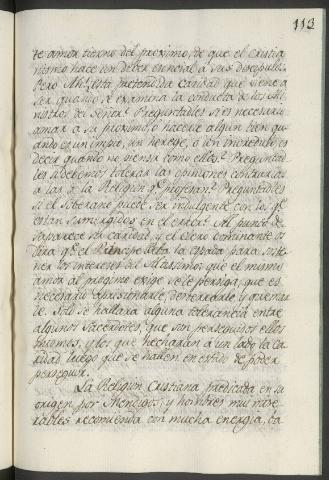 113
te amor tierno del proximo, de que el cristia
nismo hace un deber esencial á sus discipulos.
Pero Ah! esta pretendida caridad que viene a
ser quando se examina la conducta de los Mi
nistros del Señor? Preguntadles si es necesario
amar a su proximo, o hacerle algun bien qu
ando es un impio, un herege, o un incredulo, es
decir quando no piensa como ellos? Preguntad
les si debemos tolerar las opiniones contrarias
a las de la Religion qe. profesan? Preguntadles
si el Soberano puede ser indulgente con los qe.
estan sumergidos en el error? Al punto de
saparece su caridad, y el clero dominante os
dira qe. el Principe lleba la espada para soste
ner los intereses del Altisimo: que el mismo
amor al progimo exige se le persiga, que es
necesario aprisionarle, desterrarle, y
de. Solo se hallara alguna tolerancia entre
algunos Sacerdotes, que son perseguidos ellos
mismos, y los que hecharan à un lado la ca
ridad luego que se hallen en estado de poder
perseguir.
La Religion Cristiana predicada en su
origen por Mendigos, y hombres mui mise
rables recomienda con mucha energia, ba